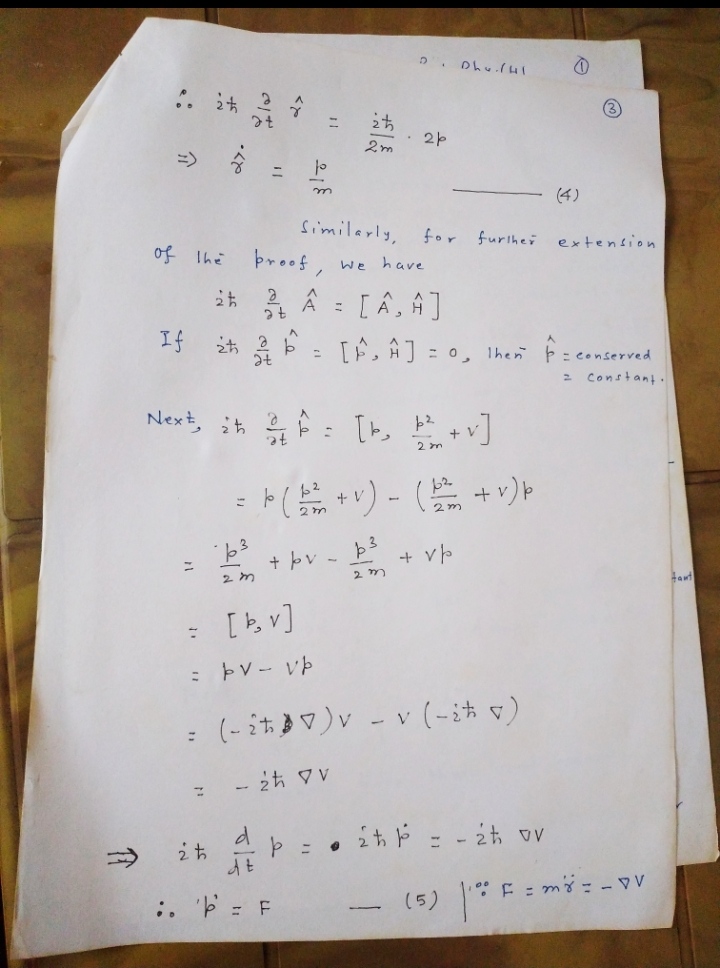 ①
③
∴ iħ ∂/∂t r̂ = iħ/2m · 2p
=> r̂̇ = p/m ——— (4)
Similarly, for further extension
of the proof, we have
iħ ∂/∂t Â = [Â, Ĥ]
If iħ ∂/∂t p̂ = [p̂, Ĥ] = 0, then p̂ = conserved
= constant.
Next, iħ ∂/∂t p̂ = [p, p²/2m + V]
= p(p²/2m + V) - (p²/2m + V)p
= p³/2m + pV - p³/2m + Vp
= [p, V]
= pV - Vp
= (-iħ ∇)V - V(-iħ ∇)
= - iħ ∇V
=> iħ d/dt p = iħ ṗ = - iħ ∇V
∴ ṗ = F — (5) | ∵ F = mr̈ = - ∇V